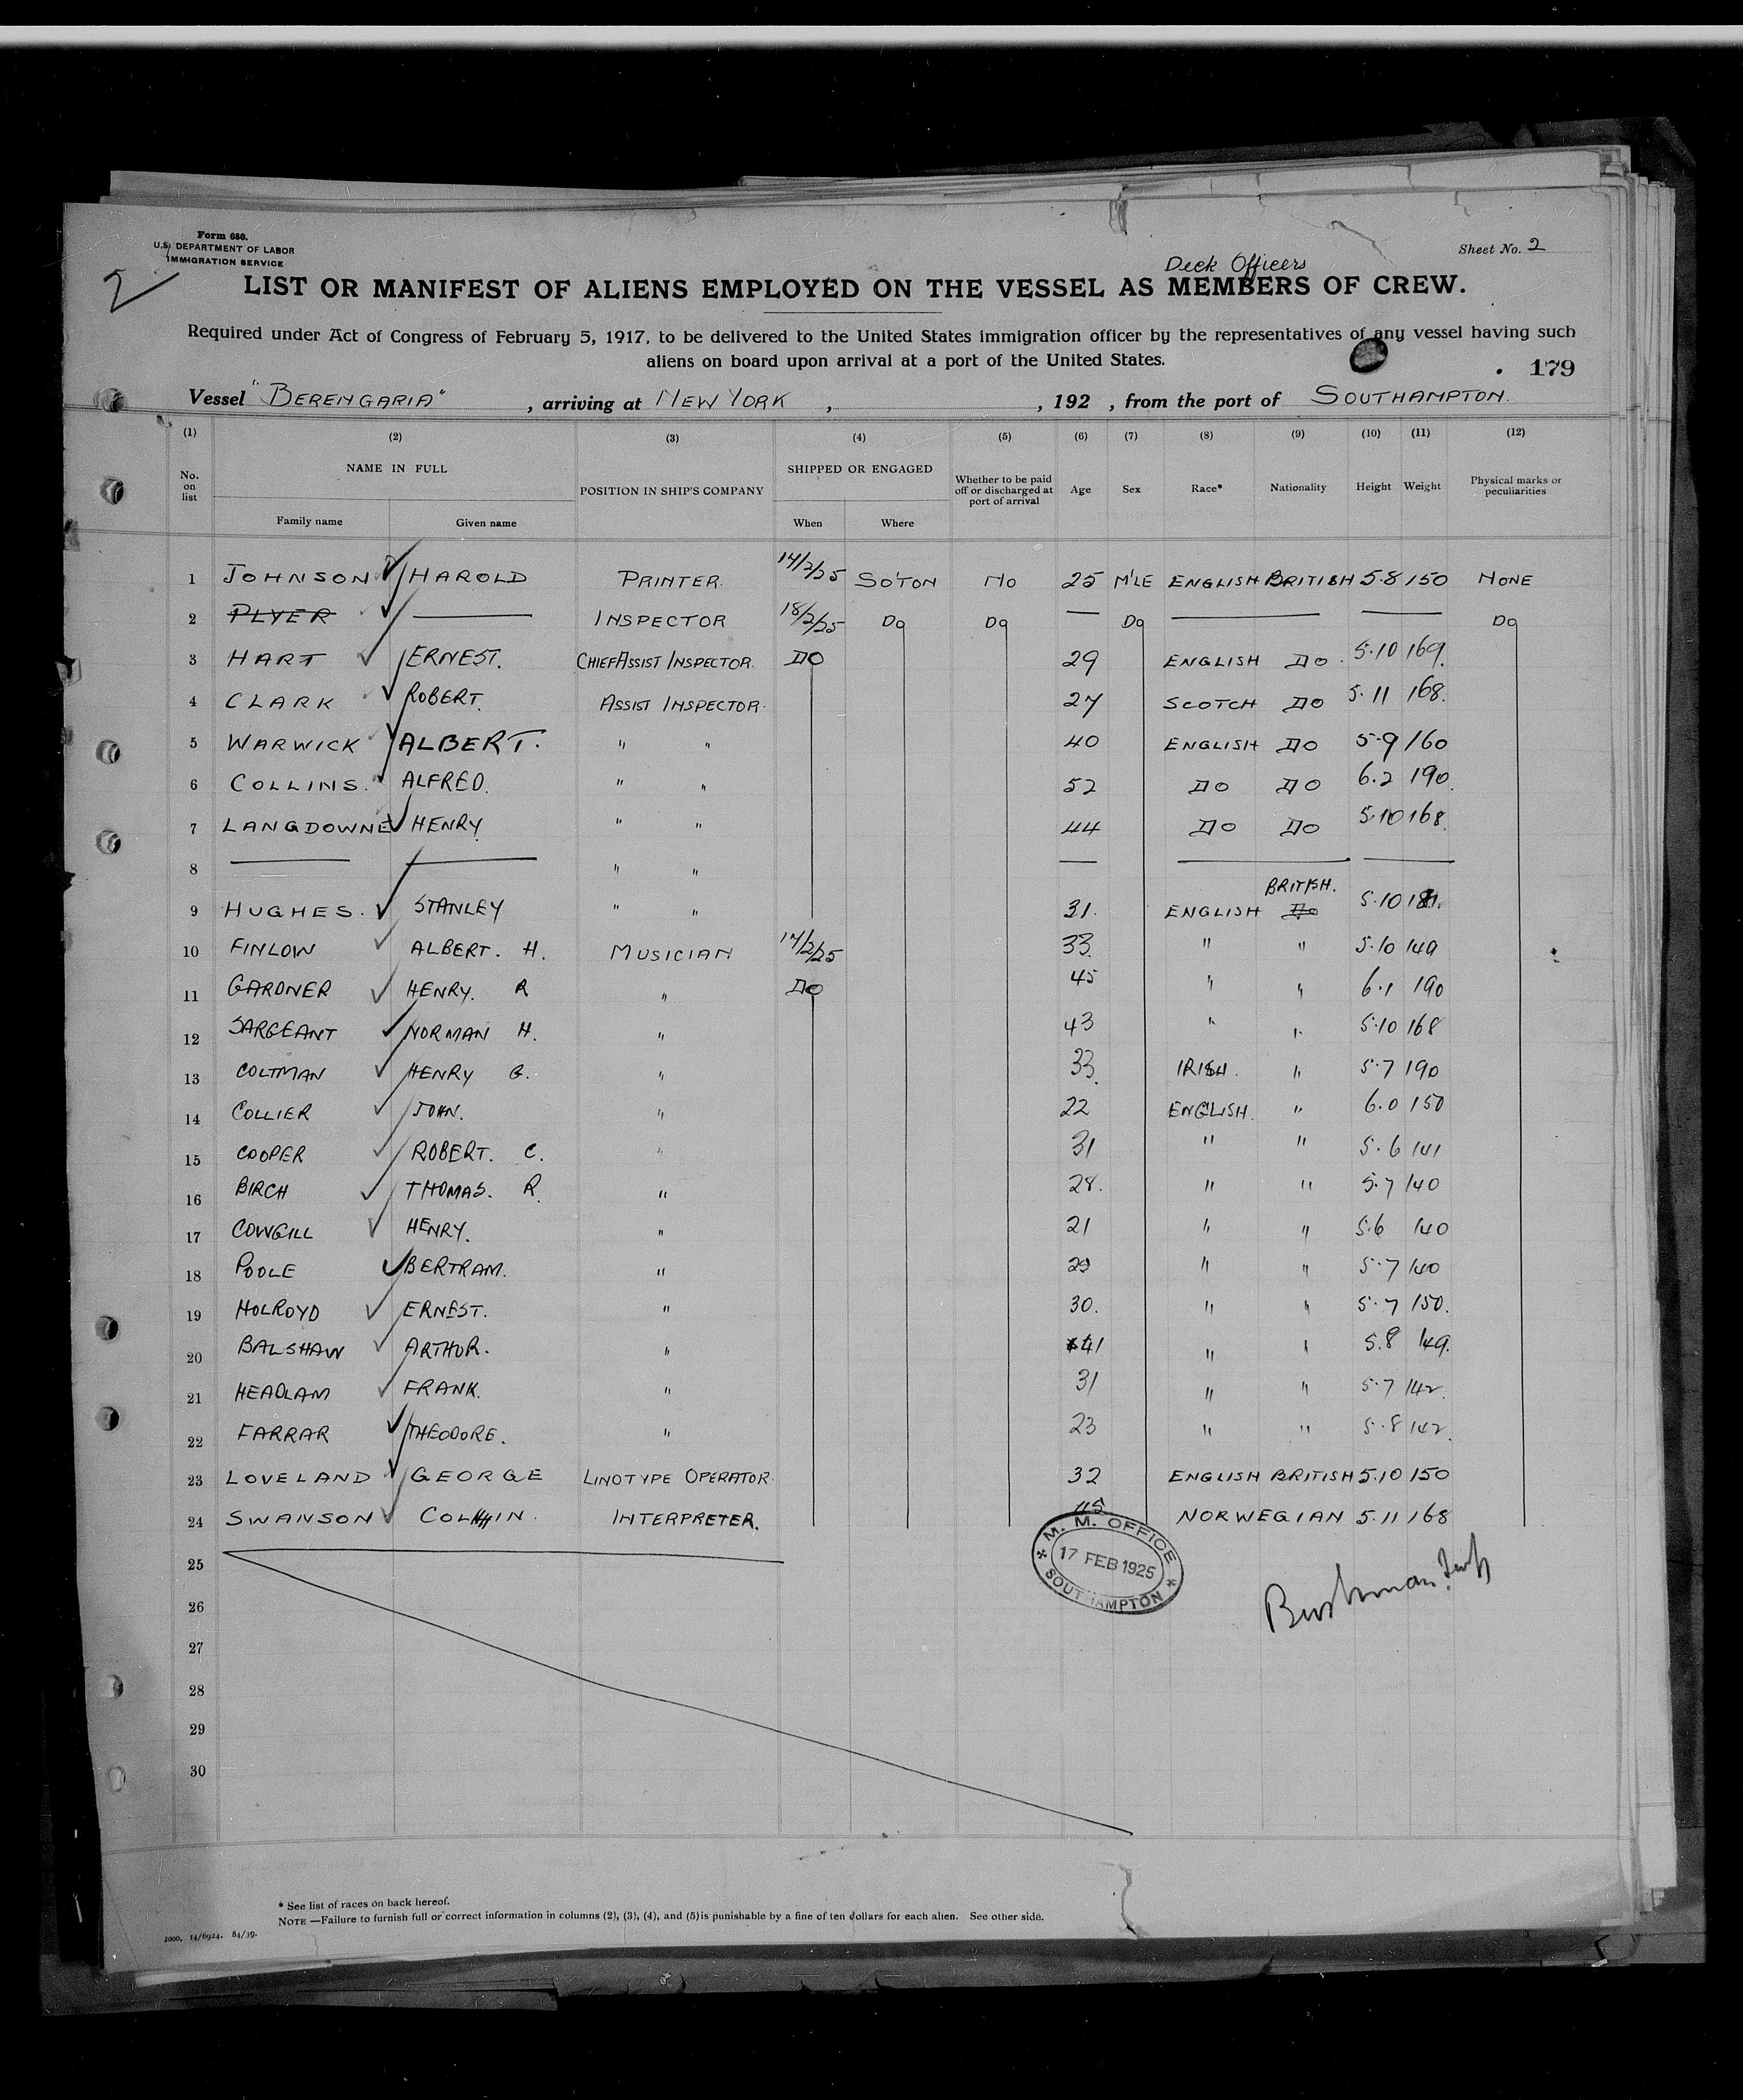 Form 680.
U.S. DEPARTMENT OF LABOR
IMMIGRATION SERVICE
Sheet No. 2
2
Deck Officers
LIST OR MANIFEST OF ALIENS EMPLOYED ON THE VESSEL AS MEMBERS OF CREW.
Required under Act of Congress of February 5, 1917, to be delivered to the United States immigration officer by the representatives of any vessel having such
aliens on board upon arrival at a port of the United States.
179
Vessel "BERENGARIA", arriving at NEW YORK, , 192 , from the port of SOUTHAMPTON.
(1) (2) (3) (4) (5) (6) (7) (8) (9) (10) (11) (12)
No. on list NAME IN FULL POSITION IN SHIP'S COMPANY SHIPPED OR ENGAGED Whether to be paid off or discharged at port of arrival Age Sex Race* Nationality Height Weight Physical marks or peculiarities
Family name Given name When Where
1 JOHNSON HAROLD PRINTER. 14/2/25 SO'TON NO 25 M'LE ENGLISH BRITISH 5.8 150 NONE
2 PLYER INSPECTOR 18/2/25 Do Do Do Do
3 HART ERNEST. CHIEF ASSIST INSPECTOR. DO 29 ENGLISH DO. 5.10 169.
4 CLARK ROBERT. ASSIST INSPECTOR. 27 SCOTCH DO 5.11 168.
5 WARWICK ALBERT. " " 40 ENGLISH DO 5.9 160
6 COLLINS. ALFRED. " " 52 DO DO 6.2 190.
7 LANGDOWNE HENRY " " 44 DO DO 5.10 168.
8 " "
BRITISH.
9 HUGHES. STANLEY " " 31. ENGLISH Do 5.10
10 FINLOW ALBERT. H. MUSICIAN 14/2/25 33. " " 5.10 149
11 GARDNER HENRY. R " DO 45 " " 6.1 190
12 SARGEANT NORMAN H. " 43 " " 5.10 168
13 COLTMAN HENRY G. " 33. IRISH. " 5.7 190
14 COLLIER JOHN. " 22 ENGLISH. " 6.0 150
15 COOPER ROBERT. C. " 31 " " 5.6 141
16 BIRCH THOMAS. R. " 28. " " 5.7 140
17 COWGILL HENRY. " 21 " " 5.6 140
18 POOLE BERTRAM. " 29 " " 5.7 140
19 HOLROYD ERNEST. " 30. " " 5.7 150.
20 BALSHAW ARTHUR. " 41 " " 5.8 149.
21 HEADLAM FRANK. " 31 " " 5.7 142.
22 FARRAR THEODORE. " 23 " " 5.8 142.
23 LOVELAND GEORGE LINOTYPE OPERATOR. 32 ENGLISH BRITISH 5.10 150
24 SWANSON INTERPRETER. 45 NORWEGIAN 5.11 168
25
26
27
28
29
30
M. M. OFFICE
17 FEB 1925
SOUTHAMPTON
* See list of races on back hereof.
NOTE —Failure to furnish full or correct information in columns (2), (3), (4), and (5) is punishable by a fine of ten dollars for each alien. See other side.
2000. 14/6924. 84/39.